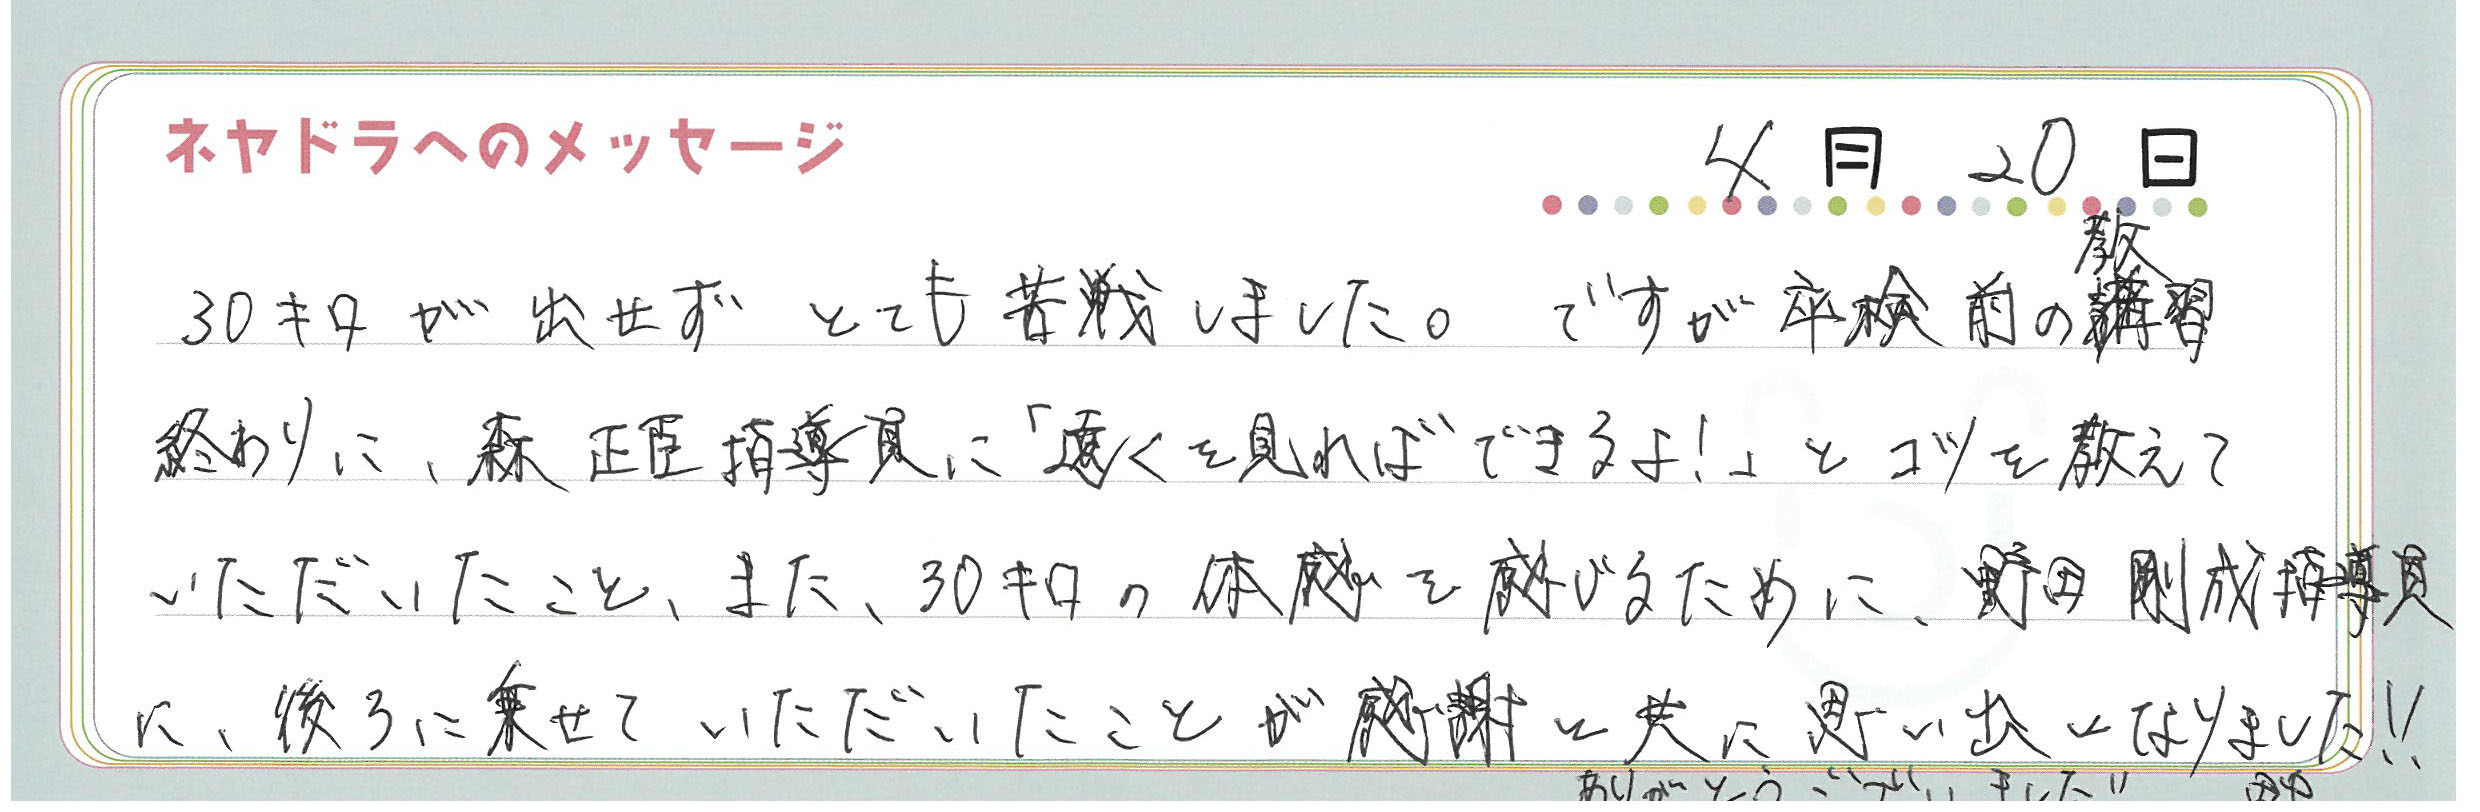 ネヤドラへのメッセージ
4月20日
教
30キロが出せずとても苦戦しました。ですが卒検前の講習
終わりに、森 正臣指導員に「遠くを見ればできるよ!」とコツを教えて
いただいたこと、また、30キロの体感を感びるために、野田 剛成指導員
に、後ろに乗せていただいたことが感謝と共に思い出となりました!!
ありがとうございました!!